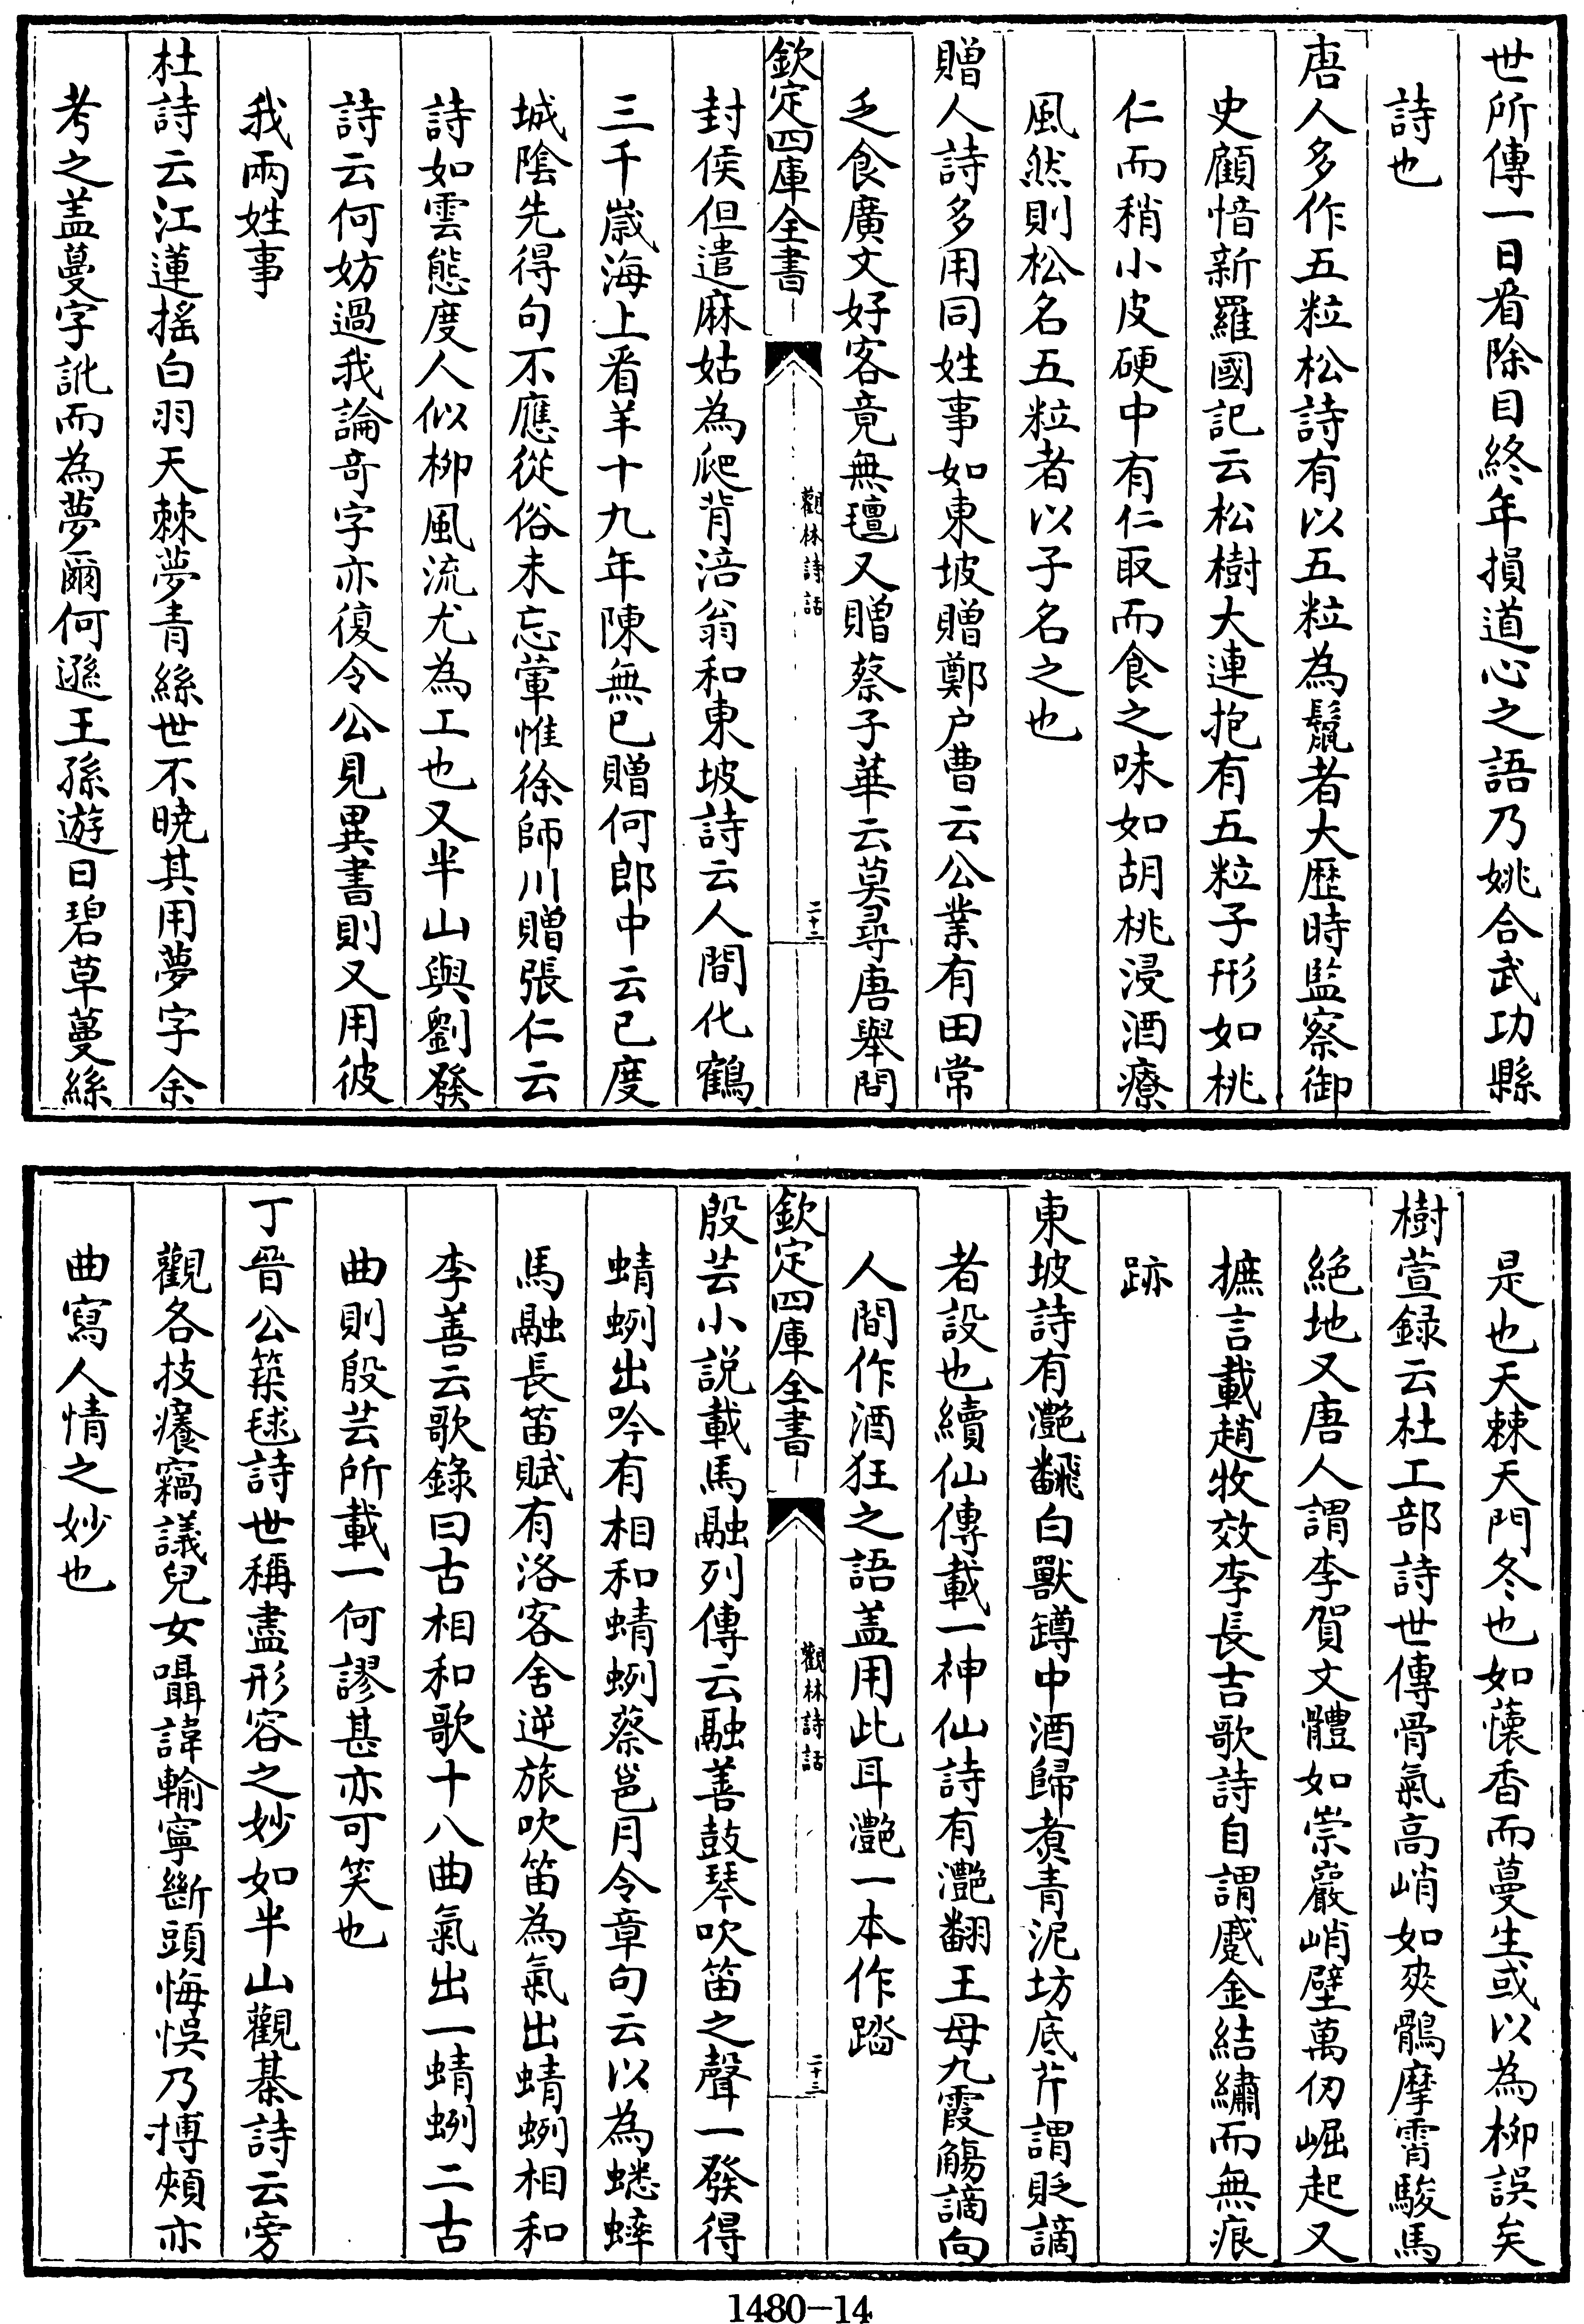 世所傳一日看除目終年損道心之語乃姚合武功縣
詩也
唐人多作五粒松詩有以五粒為鬣者大歴時監察御
史顧愔新羅國記云松樹大連抱有五粒子形如桃
仁而稍小皮硬中有仁取而食之味如胡桃浸酒療
風然則松名五粒者以子名之也
贈人詩多用同姓事如東坡贈鄭户曹云公業有田常
乏食廣文好客竟無氊又贈蔡子華云莫尋唐舉問
欽定四庫全書
觀林詩話
二十二
封侯但遣麻姑為爬背涪翁和東坡詩云人間化鶴
三千歲海上看羊十九年陳無已贈何郎中云已度
城陰先得句不應從俗未忘葷惟徐師川贈張仁云
詩如雲態度人似柳風流尤為工也又半山與劉發
詩云何妨過我論奇字亦復令公見異書則又用彼
我兩姓事
杜詩云江蓮摇白羽天棘夢青絲世不曉其用夢字余
考之盖蔓字訛而為夢爾何遜王孫遊曰碧草蔓絲
是也天棘天門冬也如蘹香而蔓生或以為柳誤矣
樹萱録云杜工部詩世傳骨氣高峭如爽鶻摩霄駿馬
絶地又唐人謂李賀文體如崇巖峭壁萬仞崛起又
摭言載趙牧效李長吉歌詩自謂蹙金結繡而無痕
跡
東坡詩有灔飜白獸罇中酒歸煮青泥坊底芹謂貶謫
者設也續仙傳載一神仙詩有灔翻王母九霞觴謫向
人間作酒狂之語盖用此耳灔一本作踏
欽定四庫全書
觀林詩話
二十三
殷芸小説載馬融列傳云融善鼓琴吹笛之聲一發得
蜻蛚出吟有相和蜻蛚蔡邕月令章句云以為蟋蟀
馬融長笛賦有洛客舍逆旅吹笛為氣出蜻蛚相和
李善云歌錄曰古相和歌十八曲氣出一蜻蛚二古
曲則殷芸所載一何謬甚亦可笑也
丁晉公築毬詩世稱盡形容之妙如半山觀棊詩云旁
觀各技癢竊議兒女囁諱輸寧斷頭悔悮乃搏頰亦
曲寫人情之妙也
1480-14